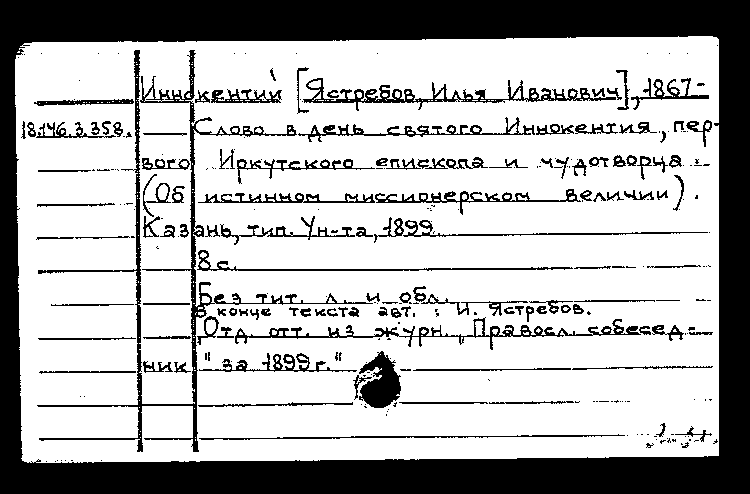 Иннокентий [Ястребов, Илья Иванович], 1867-
18.146.3.358. Слово в день святого Иннокентия, пер-
вого Иркутского епископа и чудотворца.
(Об истинном миссионерском величии).
Казань, тип. Ун-та, 1899.
8 с.
Без тит. л. и обл.
В конце текста авт.: И. Ястребов.
Отд. отт. из журн. "Правосл. собесед-
ник" за 1899 г."